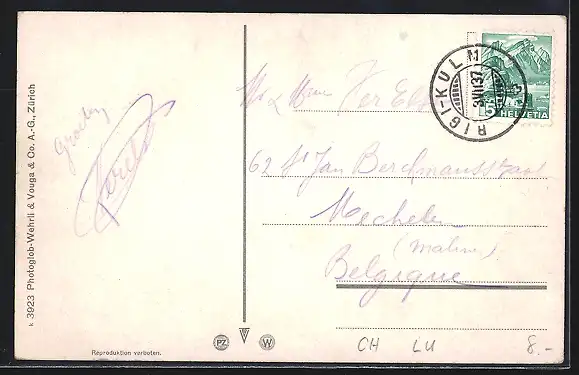 k 3923 Photoglob-Wehrli & Vouga & Co. A.-G., Zürich
Groeten
RIGI-KULM
3.VII.37
HELVETIA
Mr & Mme
62 St Jan Berchmansstraat
Mechelen
(Malines)
Belgique
Reproduktion verboten.
PZ W
CH LU 8.-